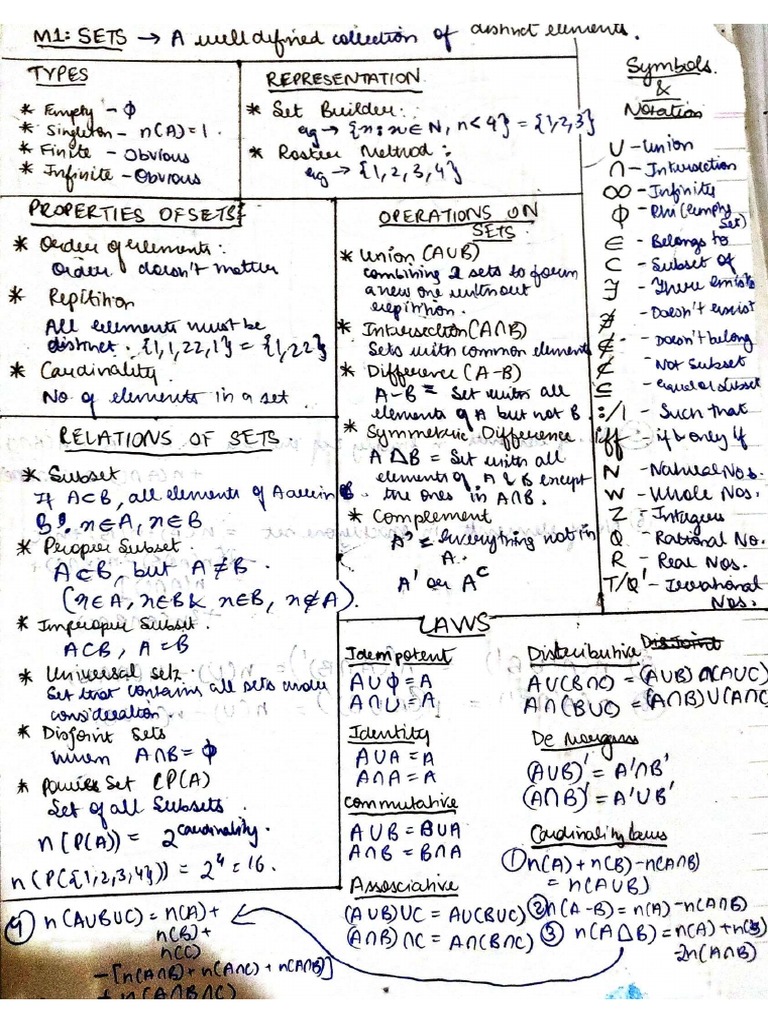 M1: SETS → A well defined collection of distinct elements.
TYPES
* Empty - ϕ
* Singleton - n(A)=1.
* Finite - Obvious
* Infinite - Obvious
REPRESENTATION
* Set Builder:
eg → {n:n∈N, n<4} = {1,2,3}
* Roster Method:
eg → {1,2,3,4}
Symbols
&
Notation
∪ - Union
∩ - Intersection
∞ - Infinity
ϕ - Phi (empty set)
∈ - Belongs to
⊂ - Subset of
∃ - There exists
∄ - Doesn't exist
∉ - Doesn't belong
⊄ - Not Subset
⊆ - equal or subset
:/| - Such that
iff - if & only if
N - Natural Nos.
W - Whole Nos.
Z - Integers
Q - Rational No.
R - Real Nos.
T/Q' - Irrational Nos.
PROPERTIES OF SETS
* Order of elements:
Order doesn't matter
* Repitition
All elements must be
distinct. {1,1,22,1} = {1,22}
* Cardinality
No. of elements in a set.
OPERATIONS ON
SETS
* Union (A∪B)
combining 2 sets to form
a new one without
repitition.
* Intersection (A∩B)
Sets with common elements
* Difference (A-B)
A-B = Set with all
elements of A but not B
* Symmetric Difference
A△B = Set with all
elements of A & B except
the ones in A∩B.
* Complement
A' = everything not in
A.
A' or Aᶜ
RELATIONS OF SETS
* Subset
If A⊂B, all elements of A are in B.
n∈A, n∈B
* Proper Subset.
A⊂B, but A≠B.
(n∈A, n∈B & n∈B, n∉A).
* Improper Subset.
A⊂B, A=B
* Universal Set
Set that contains all sets under
consideration
* Disjoint Sets
when A∩B = ϕ
* Power Set (P(A)
Set of all Subsets.
n(P(A)) = 2^cardinality.
n(P({1,2,3,4})) = 2⁴ = 16.
LAWS
Idempotent
A∪ϕ = A
A∩U = A
Identity
A∪A = A
A∩A = A
Commutative
A∪B = B∪A
A∩B = B∩A
Assosciative
(A∪B)∪C = A∪(B∪C)
(A∩B)∩C = A∩(B∩C)
Distributive
A∪(B∩C) = (A∪B)∩(A∪C)
A∩(B∪C) = (A∩B)∪(A∩C
De Morgans
(A∪B)' = A'∩B'
(A∩B)' = A'∪B'
Cardinality laws
① n(A) + n(B) - n(A∩B)
= n(A∪B)
② n(A-B) = n(A) - n(A∩B)
③ n(A△B) = n(A) + n(B)
- 2n(A∩B)
④ n(A∪B∪C) = n(A) +
n(B) +
n(C)
- [n(A∩B) + n(A∩C) + n(A∩B)]
+ n(A∩B∩C)